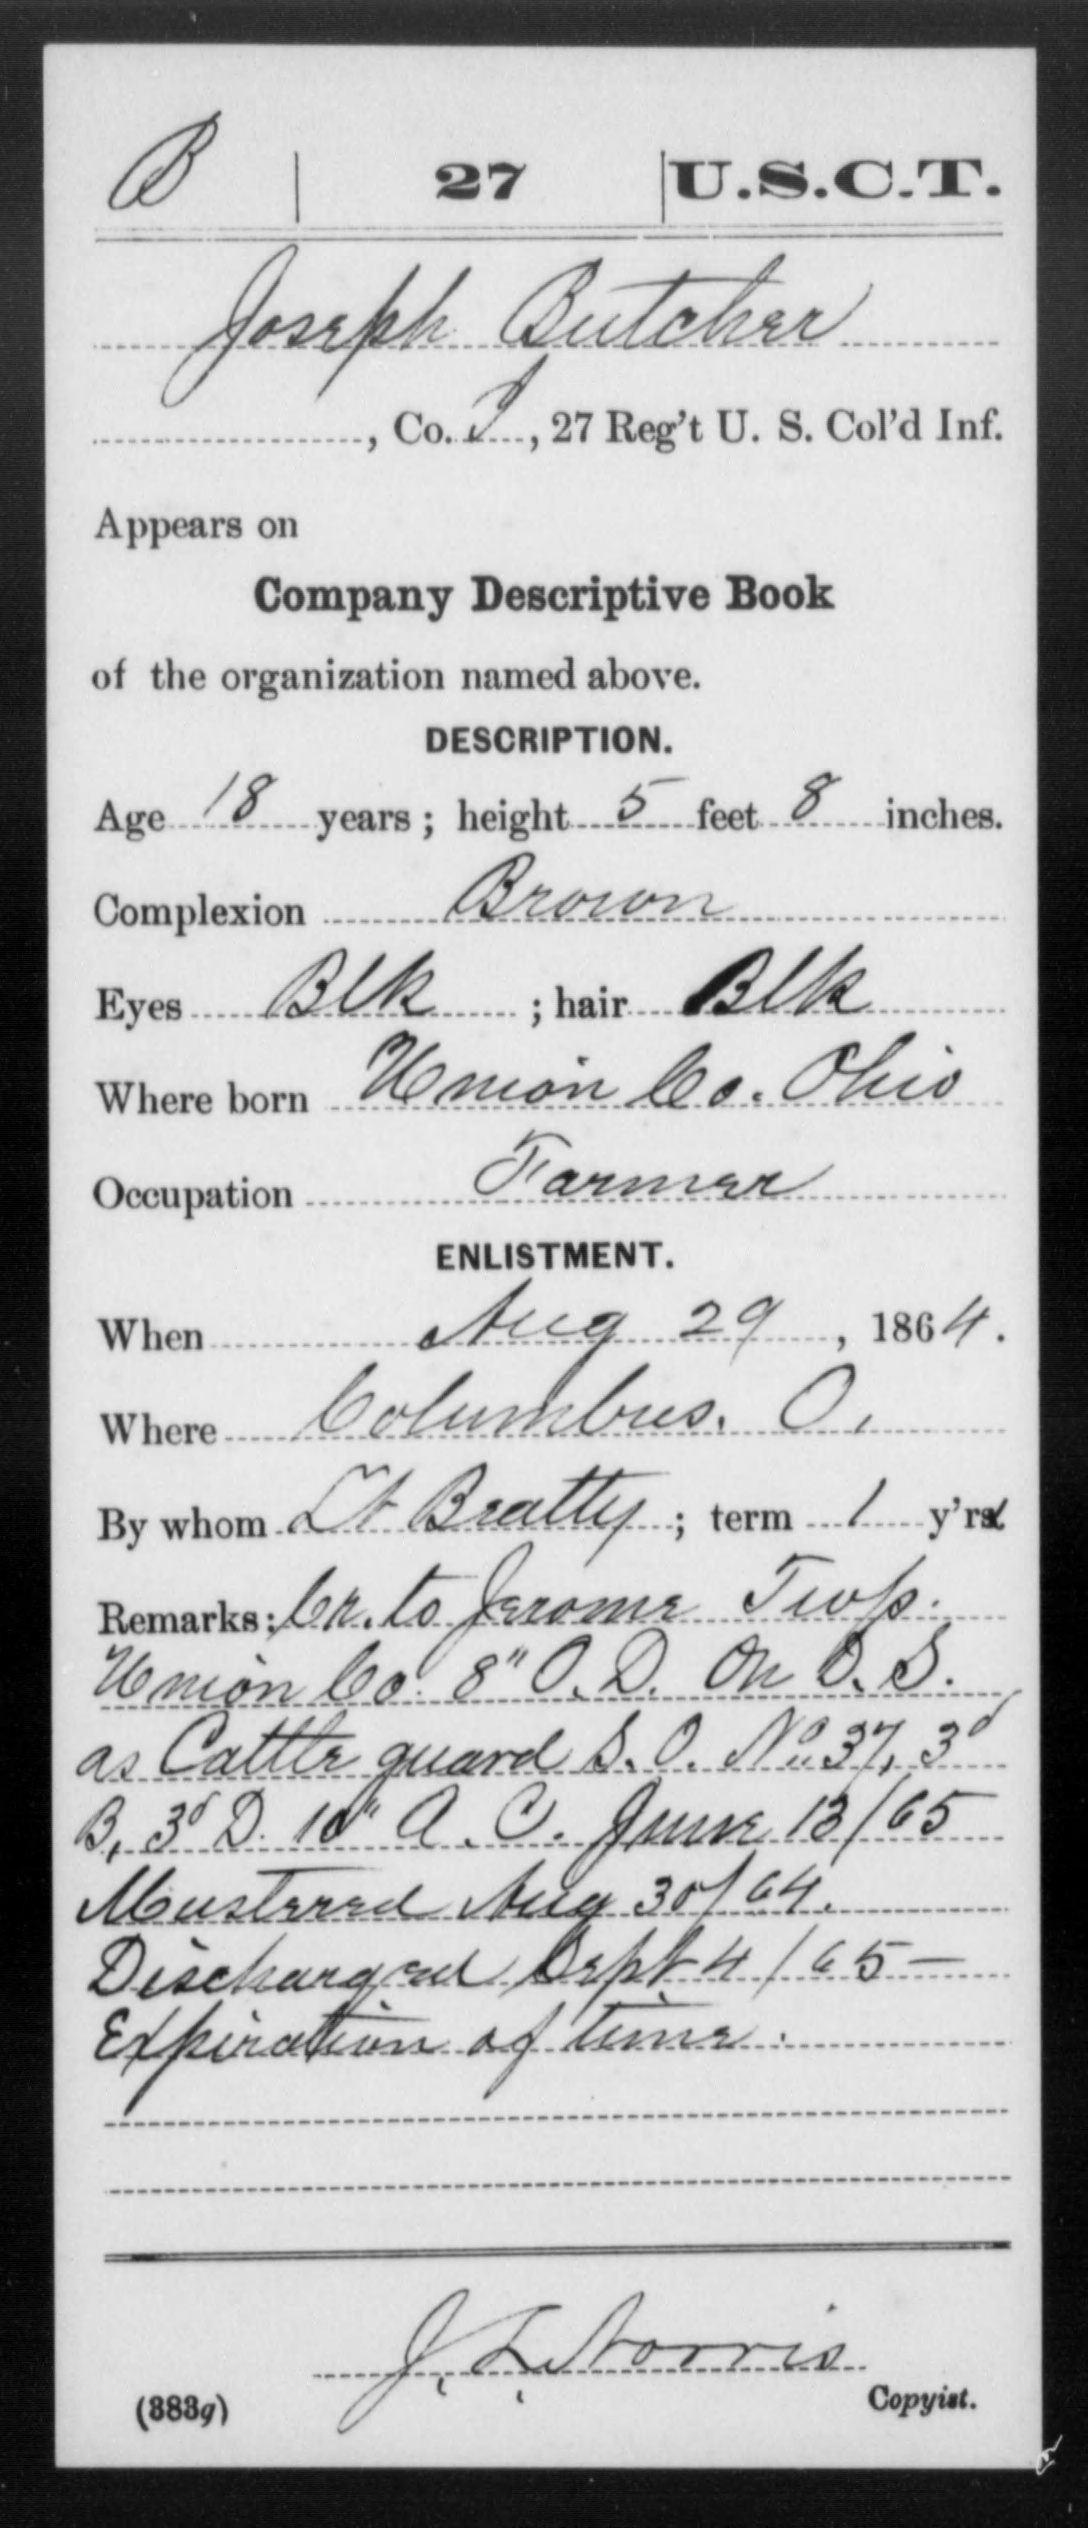 B | 27 | U.S.C.T.
Joseph Butcher
, Co. I, 27 Reg't U. S. Col'd Inf.
Appears on
Company Descriptive Book
of the organization named above.
DESCRIPTION.
Age 18 years; height 5 feet 8 inches.
Complexion Brown
Eyes Blk ; hair Blk
Where born Union Co. Ohio
Occupation Farmer
ENLISTMENT.
When Aug 29, 1864.
Where Columbus. O.
By whom Lt Beatty; term 1 y'rs
Remarks: Cr. to Jerome Twp.
Union Co. 8" O. D. On D. S.
as Cattle guard S. O. No. 37, 3d
B, 3d D. 10" A. C. June 13/65
Mustered Aug 30/64.
Discharged Sept 4/65 —
Expiration of time.
J. L. Norris
(383g) Copyist.